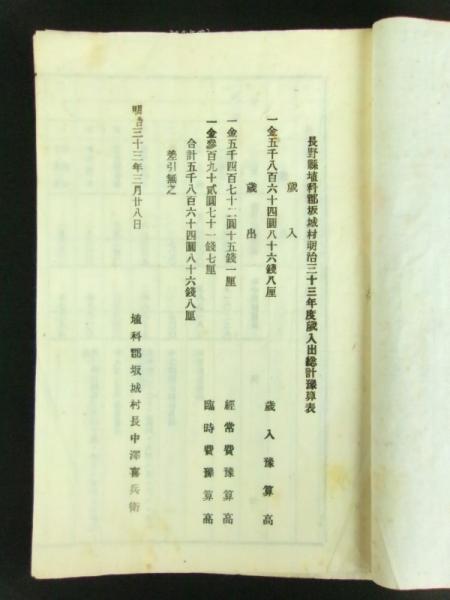 長野縣埴科郡坂城村明治三十三年度歲入出總計豫算表
歲入
一金五千八百六十四圓八十六錢八厘 歲入豫算高
歲出
一金五千四百七十二圓十五錢一厘 經常費豫算高
一金參百九十貳圓七十一錢七厘 臨時費豫算高
合計五千八百六十四圓八十六錢八厘
差引無之
明治三十三年三月廿八日
埴科郡坂城村長中澤喜兵衛